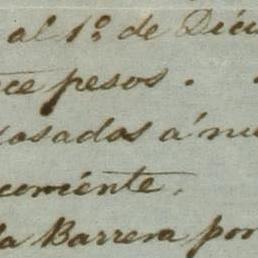 al 1º de Dici
ce pesos.
osados á nu
corriénte.
la Barrera por